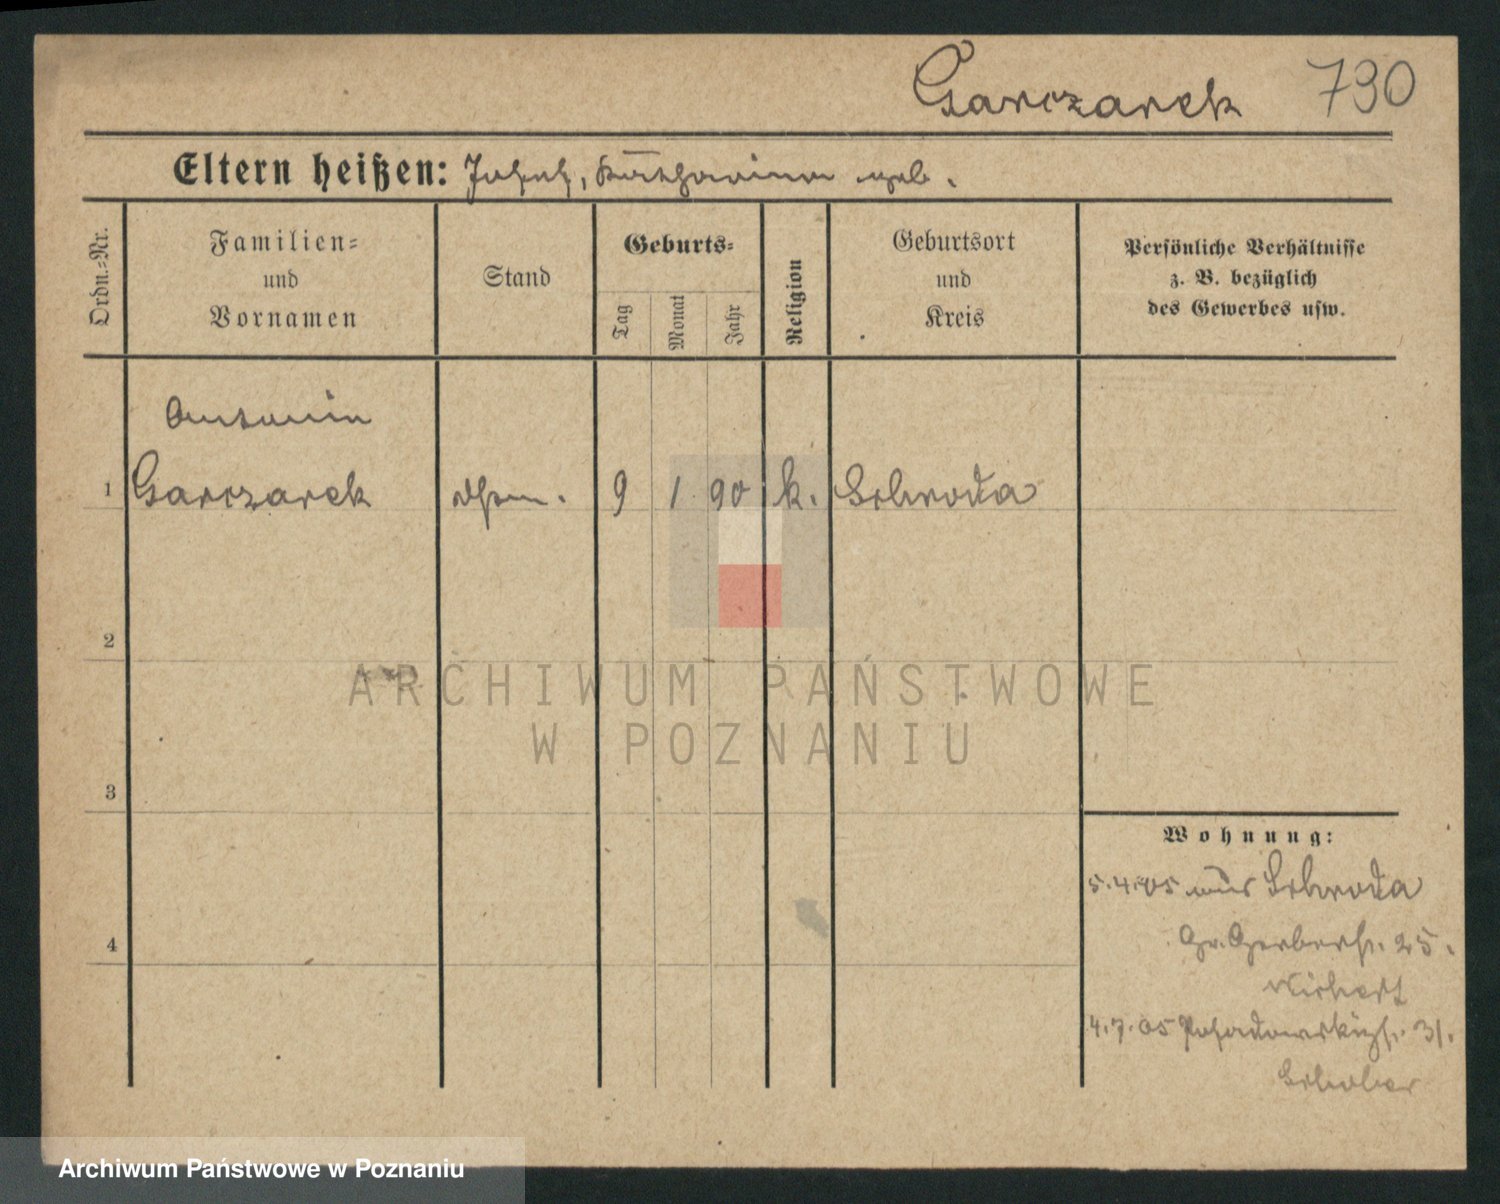 Garczarek 790
Eltern heißen: Josef, Katharina geb.
Ordn.-Nr.
Familien-
und
Vornamen
Stand
Geburts-
Tag
Monat
Jahr
Religion
Geburtsort
und
Kreis
Persönliche Verhältnisse
z. B. bezüglich
des Gewerbes usw.
Antonin
1 Garczarek 9 1 90 k. Schroda
2
ARCHIWUM PAŃSTWOWE
W POZNANIU
3
Wohnung:
5.4.05 aus Schroda
4 Gr. Gerberstr. 25.
4.7.05 Posadowskystr. 31.
Schober
Archiwum Państwowe w Poznaniu